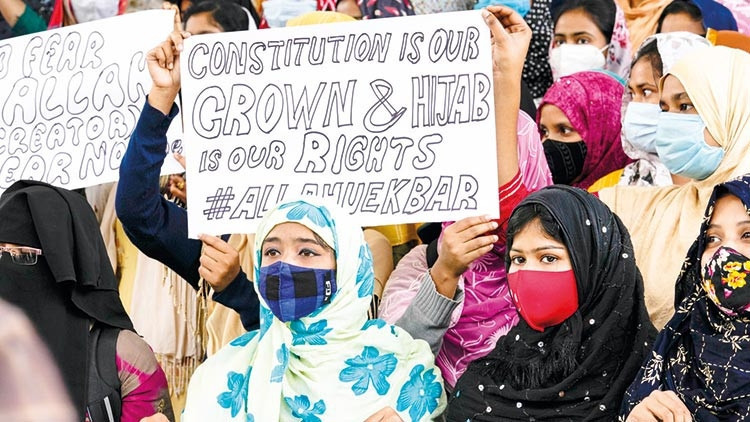 O FEAR
ALLAH
CREATOR
EAR NO
CONSTITUTION IS OUR
CROWN & HIJAB
IS OUR RIGHTS
#ALLAHUEKBAR